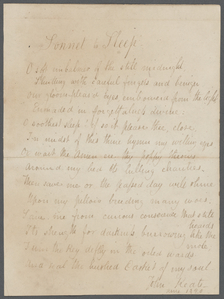 Sonnet to Sleep
O soft embalmer of the still midnight
Shutting with careful fingers and benign
Our gloom-pleased eyes, embowered from the light
Enshaded in forgetfulness divine
O soothest sleep! if so it please thee close
In midst of this thine hymn my willing eyes
Or wait the Amen ere thy poppy throws
around my bed its lulling charities
Then save me or the passed day will shine
Upon my pillow breeding many woes
Save me from curious conscience that still
its strength for darkness burrowing like the
mole
Turn the key deftly in the oiled wards
and seal the hushed casket of my soul
John Keats